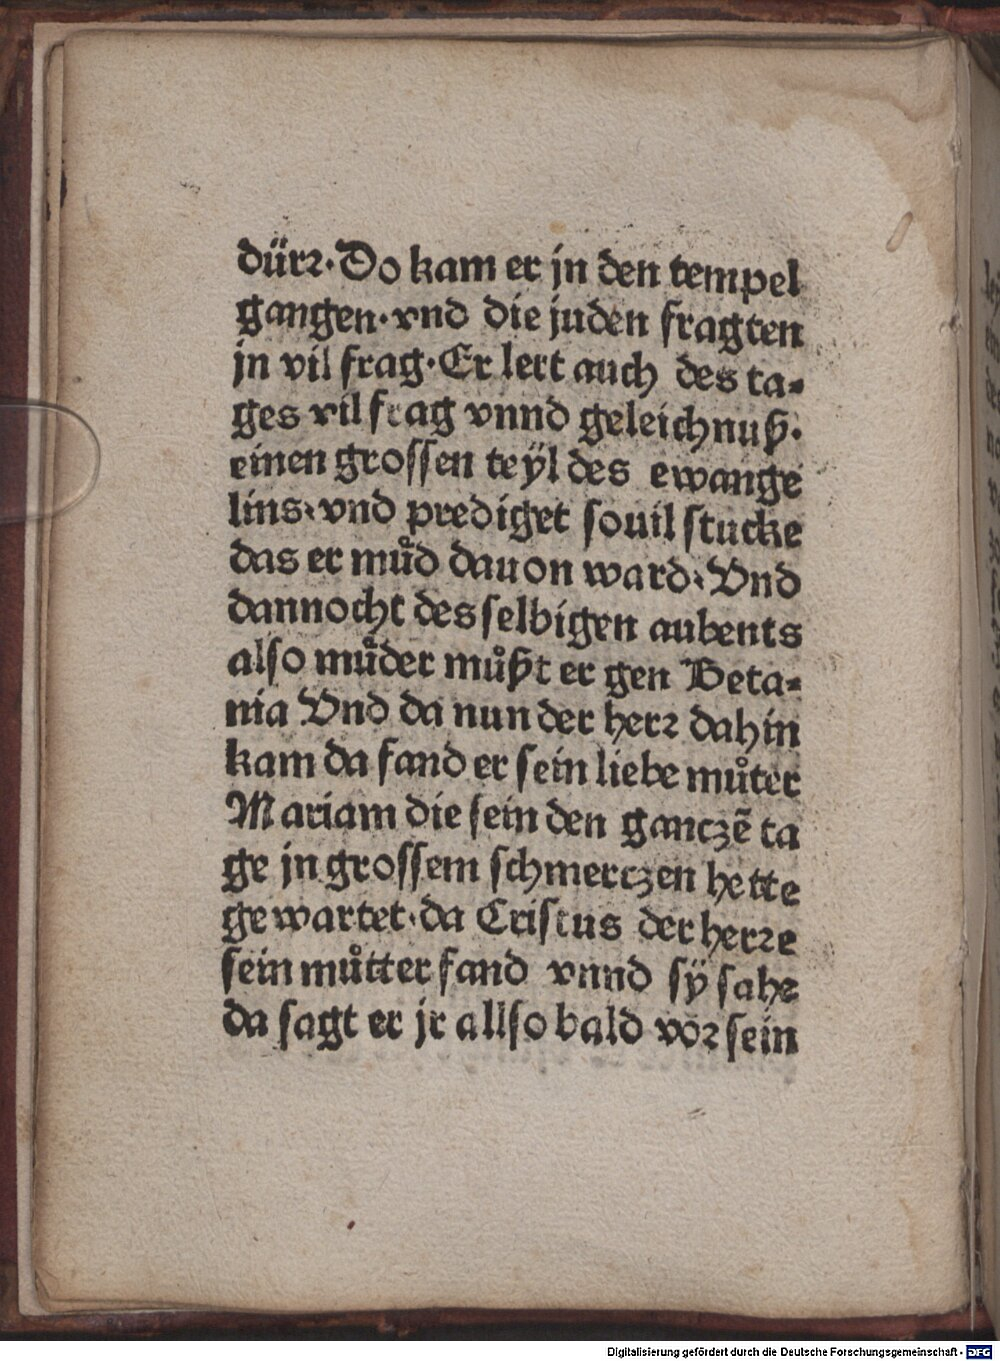 dürr. Do kam er jn den tempel
gangen. vnd die juden fragten
jn vil frag. Er lert auch des ta-
ges vil frag vnnd geleichnuß.
einen grossen teÿl des ewange
lins. vnd prediget souil stucke
das er mu̇d dauon ward. Vnd
dannocht des selbigen aubents
also mu̇der mu̇ßt er gen Beta-
nia Vnd da nun der herr dahin
kam da fand er sein liebe můter
Mariam die sein den ganczē ta
ge jn grossem schmerczen hette
gewartet. da Cristus der herre
sein můtter fand vnnd sÿ sahe
da sagt er jr allso bald vor sein
Digitalisierung gefördert durch die Deutsche Forschungsgemeinschaft - DFG